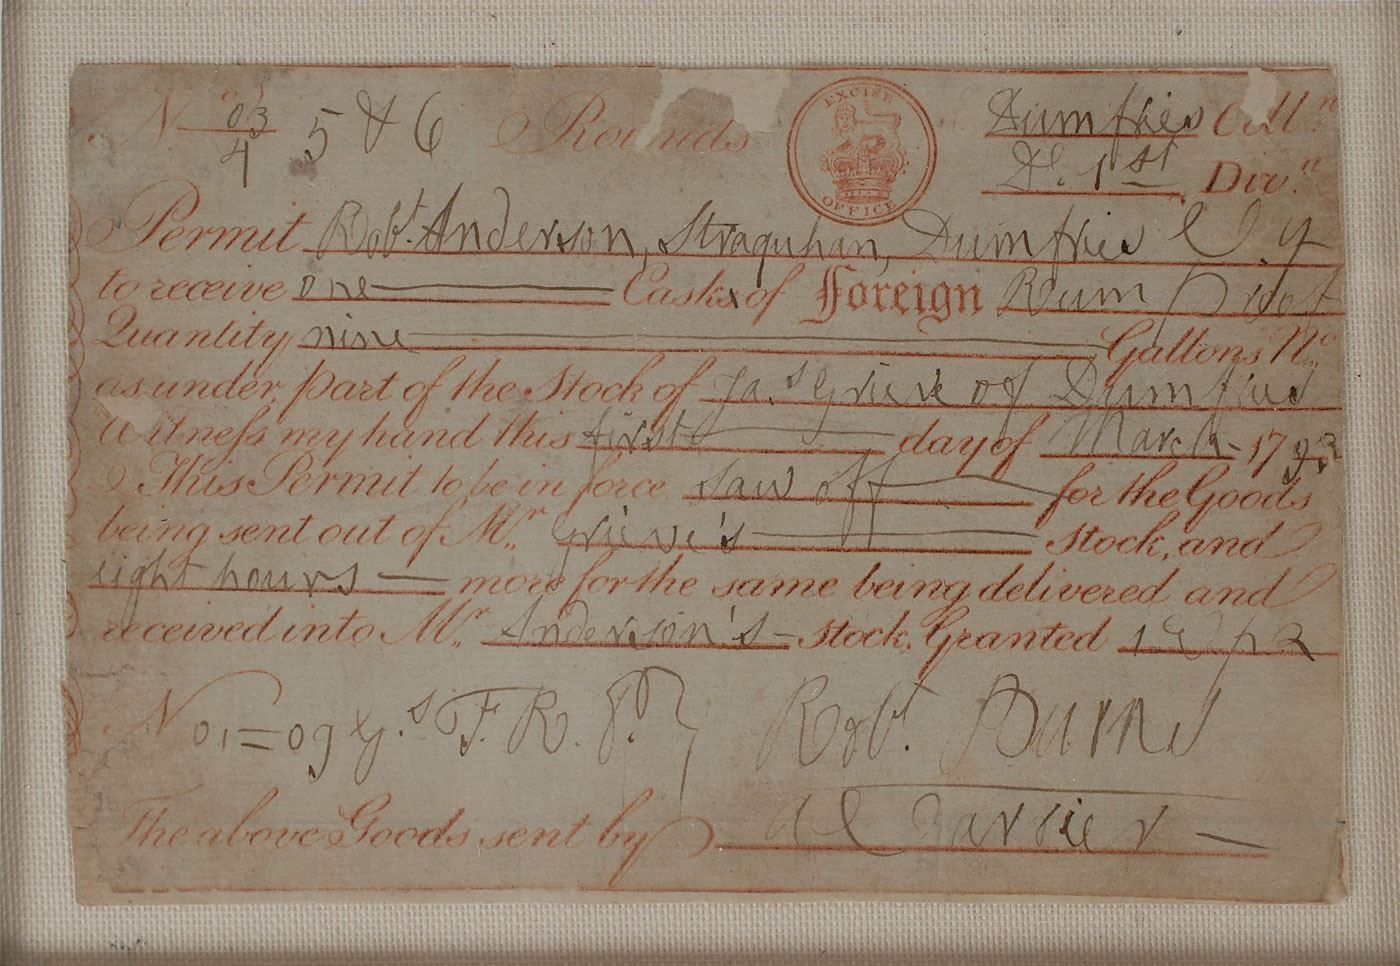 N 03/4 5 & 6 Rounds
EXCISE OFFICE
Dumfries Colln.
Do. 1st Divn.
Permit Robt. Anderson, Straquhan, Dumfries
to receive one Casks of Foreign Rum Proof
Quantity nine Gallons No.
as under, part of the Stock of Jas. Grieve of Dumfries
Witneſs my hand this first day of March 1793
This Permit to be in force for the Goods
being sent out of Mr. Grieve's Stock, and
eight hours more for the same being delivered and
received into Mr. Anderson's Stock. Granted
N 01=09 Gs. F. R. P. Robt. Burns
The above Goods sent by Carrier